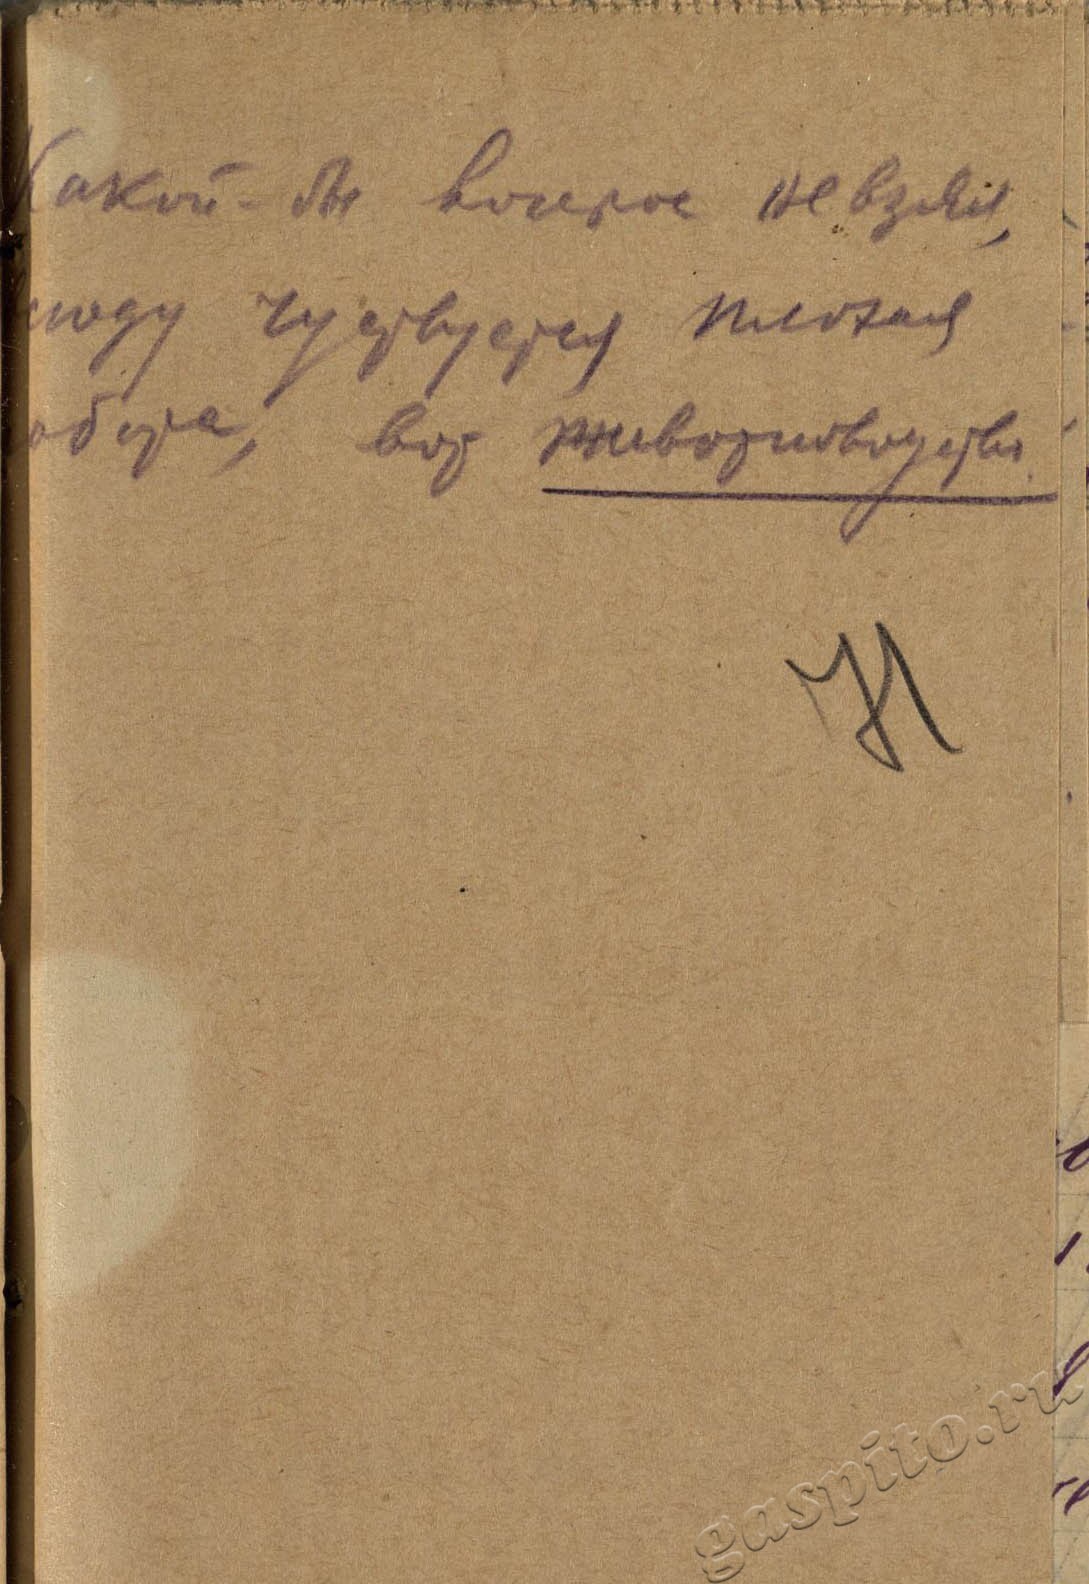 Какой-бы вопрос не взяли,
сюду чуствуется плохая
абота, вот животноводство.
Н
gaspito.ru